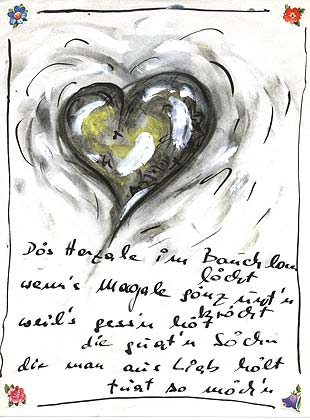 Dòs Herzale im Bauch
lòcht
wenn's Magale gònz unt'n
kròcht
weil's gess'n hòt
die guat'n Sòchn
die man aus Liab hòlt
tuat so mòch'n